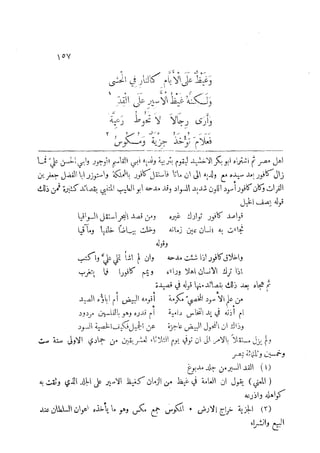 ١٥٧
وغيظ على الأيام كالنار في الحشى
ولكنه غيظ الأسير على القد ١
وأرى رجالاً لا تحوط رعية
فعلام تؤخذ جزية ومكوس ٢
اهل مصر ثم اشتراه ابو بكر الاخشيد ليقوم بتربية ولديه ابي القاسم انوجور وابي الحسن علي فما
زال كافور بعد سيده مع ولديه الى ان ماتا فاستقل كافور بالمملكة واستوزر ابا الفضل جعفر بن
الفرات وكان كافور أسود اللون شديد السواد وقد مدحه ابو الطيب المتنبي بقصائد كثيرة فمن ذلك
قوله يصف الخيل
قواصد كافور توارك غيره
ومن قصد البحر استقل السواقيا
فجاءت به انسان عين زمانه
وخلت بياضاً خلفها ومآقيا
وقوله
واخلاق كافور اذا شئت مدحه
وان لم اشأ تملي علي واكتب
اذا ترك الانسان اهلا وراءه
ويمم كافورا فما يتغرب
ثم هجاه بعد ذلك بقصائد منها قوله في قصيدة
من علم الاسود المخصي مكرمة
أقومه البيض أم اباؤه الصيد
ام اذنه في يد النخاس دامية
أم قدره وهو بالفلسين مردود
وذاك ان الفحول البيض عاجزة
عن الجميل فكيف الخصية السود
ولم يزل مستقلاً بالامر الى ان توفي يوم الثلاثاء لعشر بقين من جمادي الاولى سنة ست
وخمسين وثلثمائة بمصر
(١) القد السير من جلد مدبوغ
(المعنى) يقول ان العامة في غيظ من الزمان كغيظ الاسير على الجلد الذي وثقت به
كواهله واذرعه
(٢) الجزية خراج الارض ٠ المكوس جمع مكس وهو ما يأخذه اعوان السلطان عند
البيع والشراء